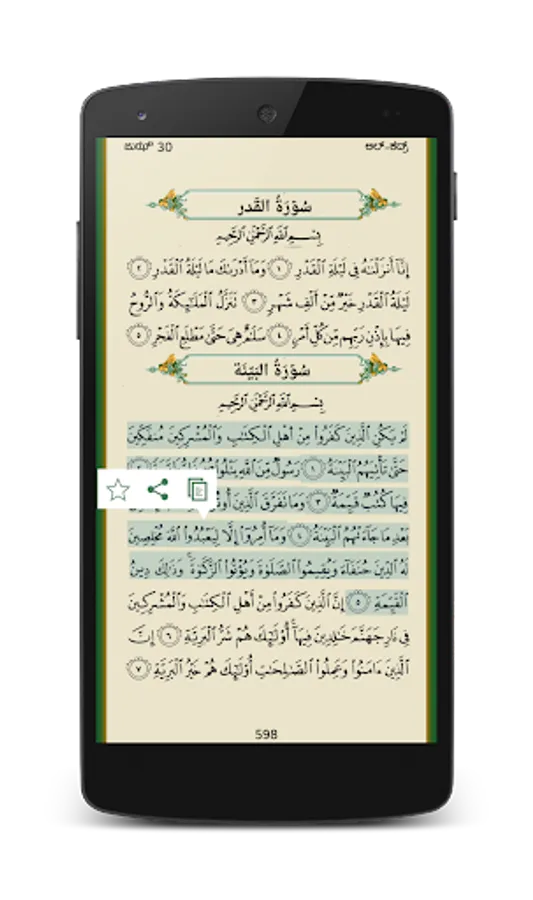 ಜುಝ್ 30 ಅಲ್-ಕದ್ರ್
سُوْرَةُ القَدر
بِسْمِ ٱللَّهِ ٱلرَّحْمَٰنِ ٱلرَّحِيمِ
إِنَّآ أَنزَلْنَٰهُ فِى لَيْلَةِ ٱلْقَدْرِ ١ وَمَآ أَدْرَىٰكَ مَا لَيْلَةُ ٱلْقَدْرِ ٢
لَيْلَةُ ٱلْقَدْرِ خَيْرٌ مِّنْ أَلْفِ شَهْرٍ ٣ تَنَزَّلُ ٱلْمَلَٰٓئِكَةُ وَٱلرُّوحُ
فِيهَا بِإِذْنِ رَبِّهِم مِّن كُلِّ أَمْرٍ ٤ سَلَٰمٌ هِىَ حَتَّىٰ مَطْلَعِ ٱلْفَجْرِ ٥
سُوْرَةُ البَيّنَة
بِسْمِ ٱللَّهِ ٱلرَّحْمَٰنِ ٱلرَّحِيمِ
لَمْ يَكُنِ ٱلَّذِينَ كَفَرُوا۟ مِنْ أَهْلِ ٱلْكِتَٰبِ وَٱلْمُشْرِكِينَ مُنفَكِّينَ
حَتَّىٰ تَأْتِيَهُمُ ٱلْبَيِّنَةُ ١ رَسُولٌ مِّنَ ٱللَّهِ يَتْلُوا۟
فِيهَا كُتُبٌ قَيِّمَةٌ ٣ وَمَا تَفَرَّقَ ٱلَّذِينَ
بَعْدِ مَا جَآءَتْهُمُ ٱلْبَيِّنَةُ ٤ وَمَآ أُمِرُوٓا۟ إِلَّا لِيَعْبُدُوا۟ ٱللَّهَ مُخْلِصِينَ
لَهُ ٱلدِّينَ حُنَفَآءَ وَيُقِيمُوا۟ ٱلصَّلَوٰةَ وَيُؤْتُوا۟ ٱلزَّكَوٰةَ ۚ وَذَٰلِكَ دِينُ
ٱلْقَيِّمَةِ ٥ إِنَّ ٱلَّذِينَ كَفَرُوا۟ مِنْ أَهْلِ ٱلْكِتَٰبِ وَٱلْمُشْرِكِينَ
فِى نَارِ جَهَنَّمَ خَٰلِدِينَ فِيهَآ ۚ أُو۟لَٰٓئِكَ هُمْ شَرُّ ٱلْبَرِيَّةِ ٦ إِنَّ
ٱلَّذِينَ ءَامَنُوا۟ وَعَمِلُوا۟ ٱلصَّٰلِحَٰتِ أُو۟لَٰٓئِكَ هُمْ خَيْرُ ٱلْبَرِيَّةِ ٧
598